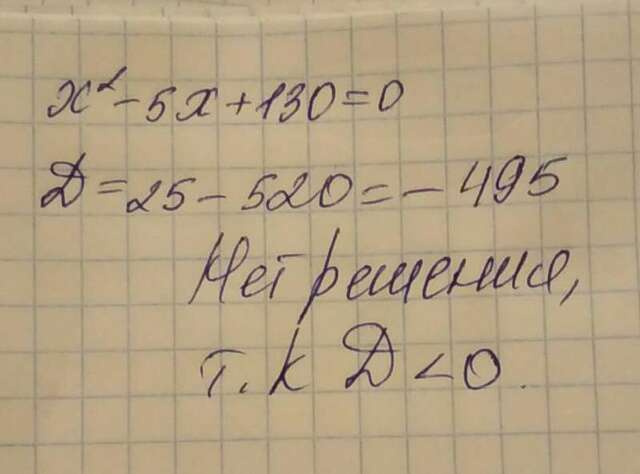 x² - 5x + 130 = 0
Д = 25 - 520 = - 495
Нет решения,
т.к Д < 0.